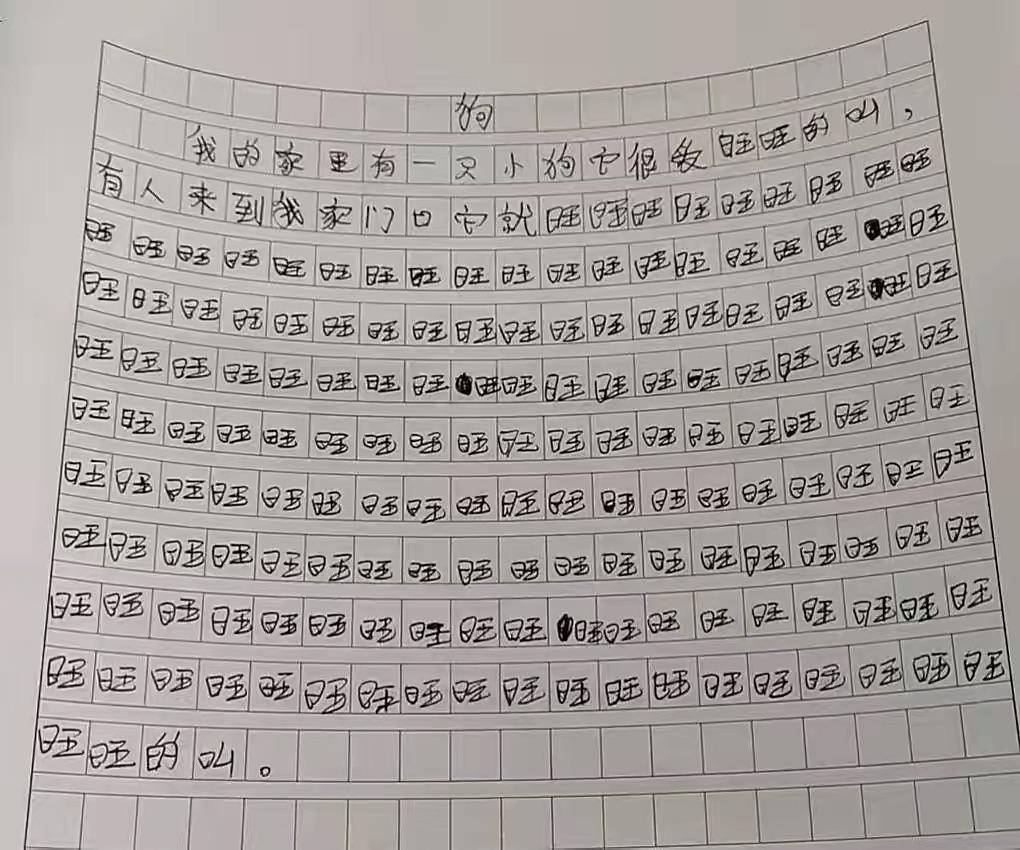 狗
我的家里有一只小狗它很爱旺旺的叫，
有人来到我家门口它就旺旺旺旺旺旺旺旺旺
旺旺旺旺旺旺旺旺旺旺旺旺旺旺旺旺旺旺旺
旺旺旺旺旺旺旺旺旺旺旺旺旺旺旺旺旺旺旺
旺旺旺旺旺旺旺旺旺旺旺旺旺旺旺旺旺旺旺
旺旺旺旺旺旺旺旺旺旺旺旺旺旺旺旺旺旺旺
旺旺旺旺旺旺旺旺旺旺旺旺旺旺旺旺旺旺旺
旺旺旺旺旺旺旺旺旺旺旺旺旺旺旺旺旺旺旺
旺旺旺旺旺旺旺旺旺旺旺旺旺旺旺旺旺旺旺
旺旺旺旺旺旺旺旺旺旺旺旺旺旺旺旺旺旺旺
旺旺的叫。